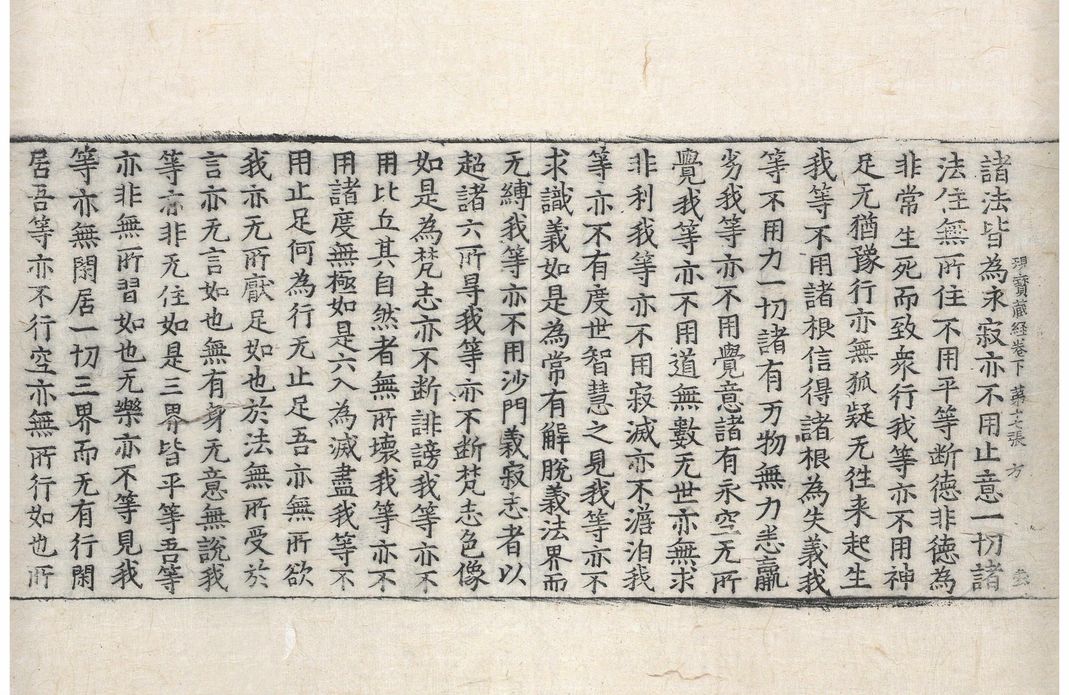 現寶藏経卷下 苐十七張 方
諸法皆為永寂亦不用止意一切諸
法住無所住不用平等断徳非徳為
非常生死而致衆行我等亦不用神
足无猶豫行亦無狐疑无往来起生
我等不用諸根信得諸根為失義我
等不用力一切諸有万物無力悉羸
劣我等亦不用覺意諸有永空无所
覺我等亦不用道無數无世亦無求
非利我等亦不用寂滅亦不澹泊我
等亦不有度世智慧之見我等亦不
求識義如是為常有解脫義法界而
无縛我等亦不用沙門義寂志者以
超諸六所㝵我等亦不断梵志色像
如是為梵志亦不断誹謗我等亦不
用比丘其自然者無所壞我等亦不
用諸度無極如是六入為滅盡我等不
用止足何為行无止足吾亦無所欲
我亦无所猒足如也於法無所受於
言亦无言如也無有身无意無說我
等亦非无住如是三界皆平等吾等
亦非無所習如也无樂亦不等見我
等亦無閑居一切三界而无有行閑
居吾等亦不行空亦無所行如也所